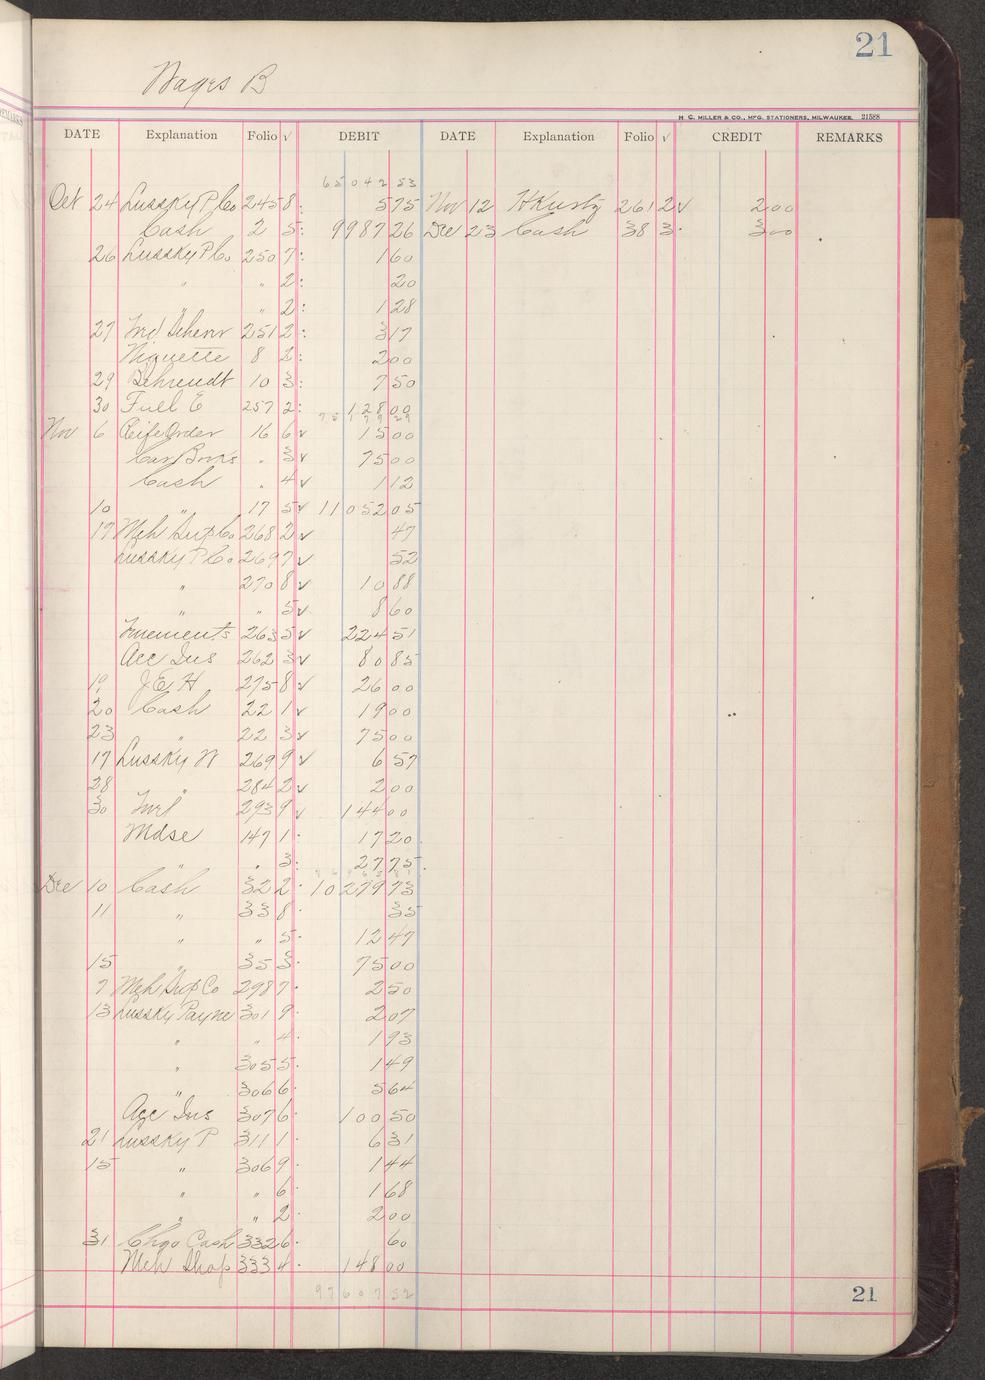 21
Wages B
H. C. MILLER & CO., MFG. STATIONERS, MILWAUKEE. 21588
DATE Explanation Folio √ DEBIT DATE Explanation Folio √ CREDIT REMARKS
65042 53
Oct 24 Lussky P Co 245 8: 5 75 Nov 12 261 2 √ 2 00
Cash 2 5: 9987 26 Dec 23 Cash 38 3· 3 00
26 Lussky P Co 250 7: 1 60
" " 2: 20
" " 2: 1 28
27 251 2: 3 17
Niquette 8 2: 2 00
29 Behrendt 10 3: 7 50
30 Fuel E 257 2: 128 00
75179 29
Nov 6 Order 16 6 √ 15 00
Car Books " 3 √ 75 00
Cash " 4 √ 1 12
10 " 17 5 √ 11052 05
17 Mch Sup Co 268 2 √ 47
Lussky P Co 269 7 √ 52
" 270 8 √ 10 88
" " 5 √ 8 60
263 5 √ 224 51
Acc Ins 262 3 √ 80 85
19 J E H 275 8 √ 26 00
20 Cash 22 1 √ 19 00
23 " 22 3 √ 75 00
17 Lussky W 269 9 √ 6 57
28 " 284 2 √ 2 00
30 293 9 √ 144 00
Mdse 147 1· 17 20
" " 3: 27 75
Dec 10 Cash 32 2· 10279 73
11 " 33 8 35
" " 5· 12 47
15 " 35 3· 75 00
7 Mch Sup Co 298 7· 2 50
13 Lussky Payne 301 9· 2 07
" " 4· 1 93
" 305 5· 1 49
" 306 6· 5 64
Acc Ins 307 6· 100 50
21 Lussky P 311 1· 6 31
15 " 306 9· 1 44
" " 6· 1 68
" " 2· 2 00
31 Chgo Cash 332 6· 60
Mch Shop 333 4· 148 00
97607 52
21